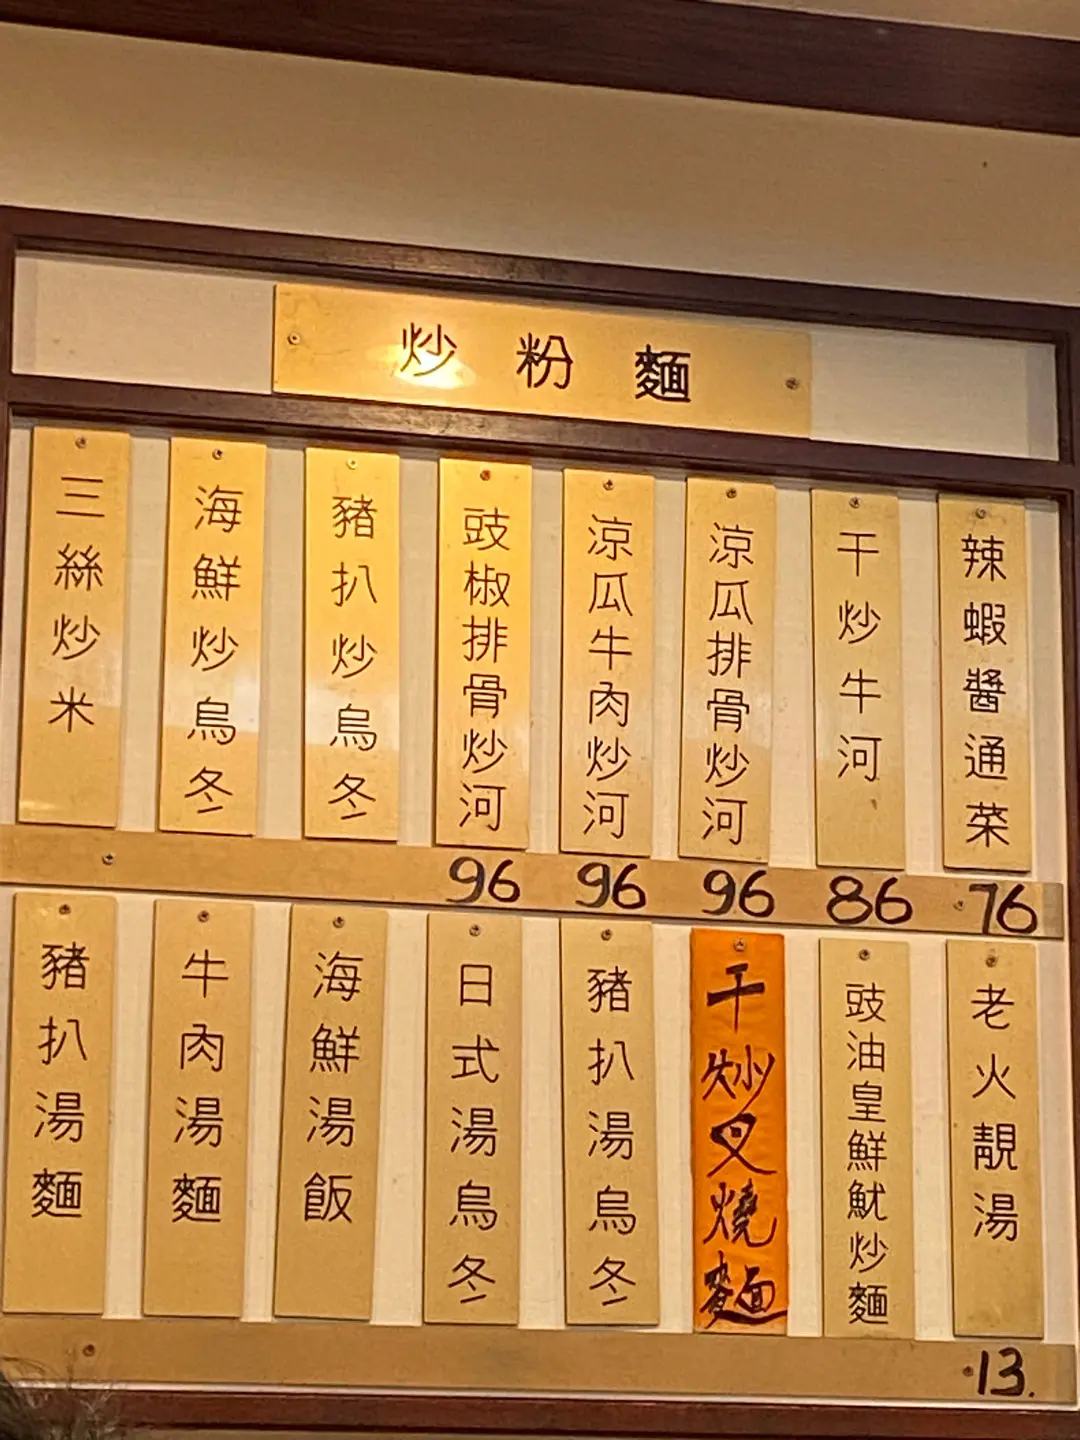 炒粉麵
辣蝦醬通菜
干炒牛河
涼瓜排骨炒河
涼瓜牛肉炒河
豉椒排骨炒河
豬扒炒烏冬
海鮮炒烏冬
三絲炒米
76
86
96
96
96
老火靚湯
豉油皇鮮魷炒麵
干炒叉燒麵
豬扒湯烏冬
日式湯烏冬
海鮮湯飯
牛肉湯麵
豬扒湯麵
13.